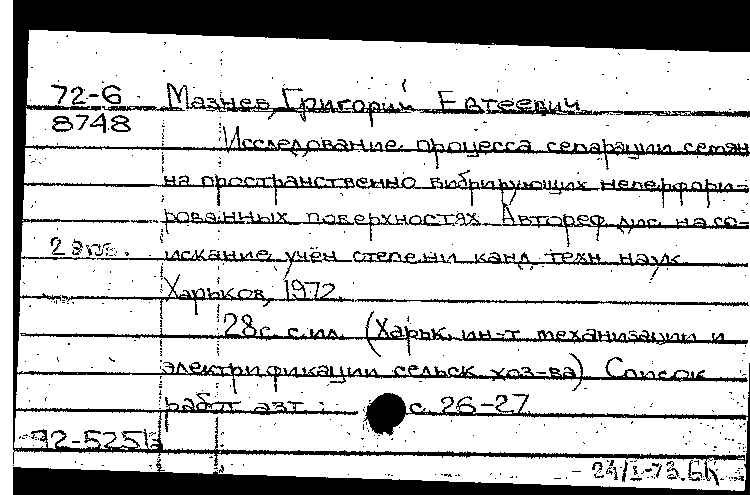 72-6 Мазнев, Григорий Евтеевич
8748
Исследование процесса сепарации семян
на пространственно вибрирующих неперфори-
рованных поверхностях. Автореф. дис. на со-
2 экз. искание учён степени канд. техн. наук.
Харьков, 1972.
28с. с ил. (Харьк. ин-т механизации и
электрификации сельск хоз-ва) Список
работ авт: с. 26-27
92-5251
24/I-73. БК